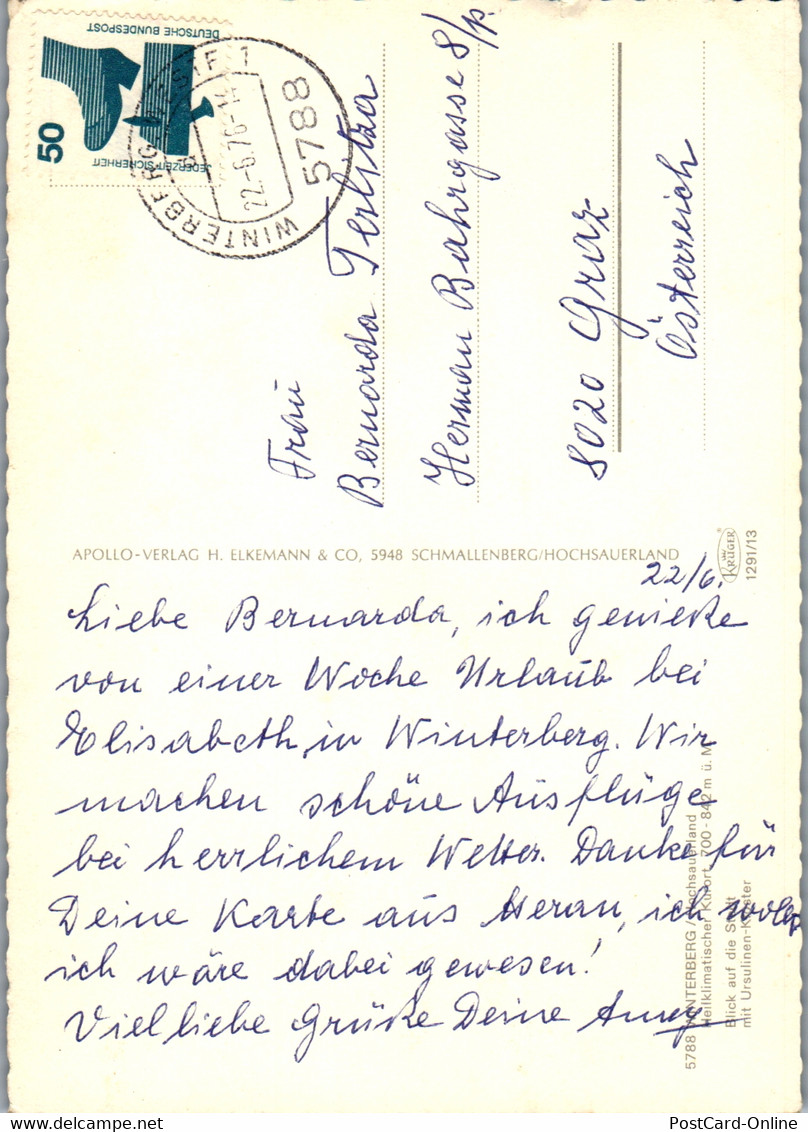 DEUTSCHE BUNDESPOST
JEDERZEIT SICHERHEIT
50
WINTERBERG, WESTF 1
22.-6.76-14
5788
Frau
Bernarda
Herman Bahrgasse 8/p.
8020 Graz
Österreich
APOLLO-VERLAG H. ELKEMANN & CO, 5948 SCHMALLENBERG/HOCHSAUERLAND
KRÜGER
1291/13
22/6.
Liebe Bernarda, ich genieße
von einer Woche Urlaub bei
Elisabeth, in Winterberg. Wir
machen schöne Ausflüge
bei herrlichem Wetter. Danke für
Deine Karte aus Meran, ich
ich wäre dabei gewesen!
Viel liebe Grüße Deine
5788 WINTERBERG / Hochsauerland
Heilklimatischer Kurort, 700-842 m ü. M.
Blick auf die Stadt
mit Ursulinen-Kloster
www.delcampe.net
PostCard-Online